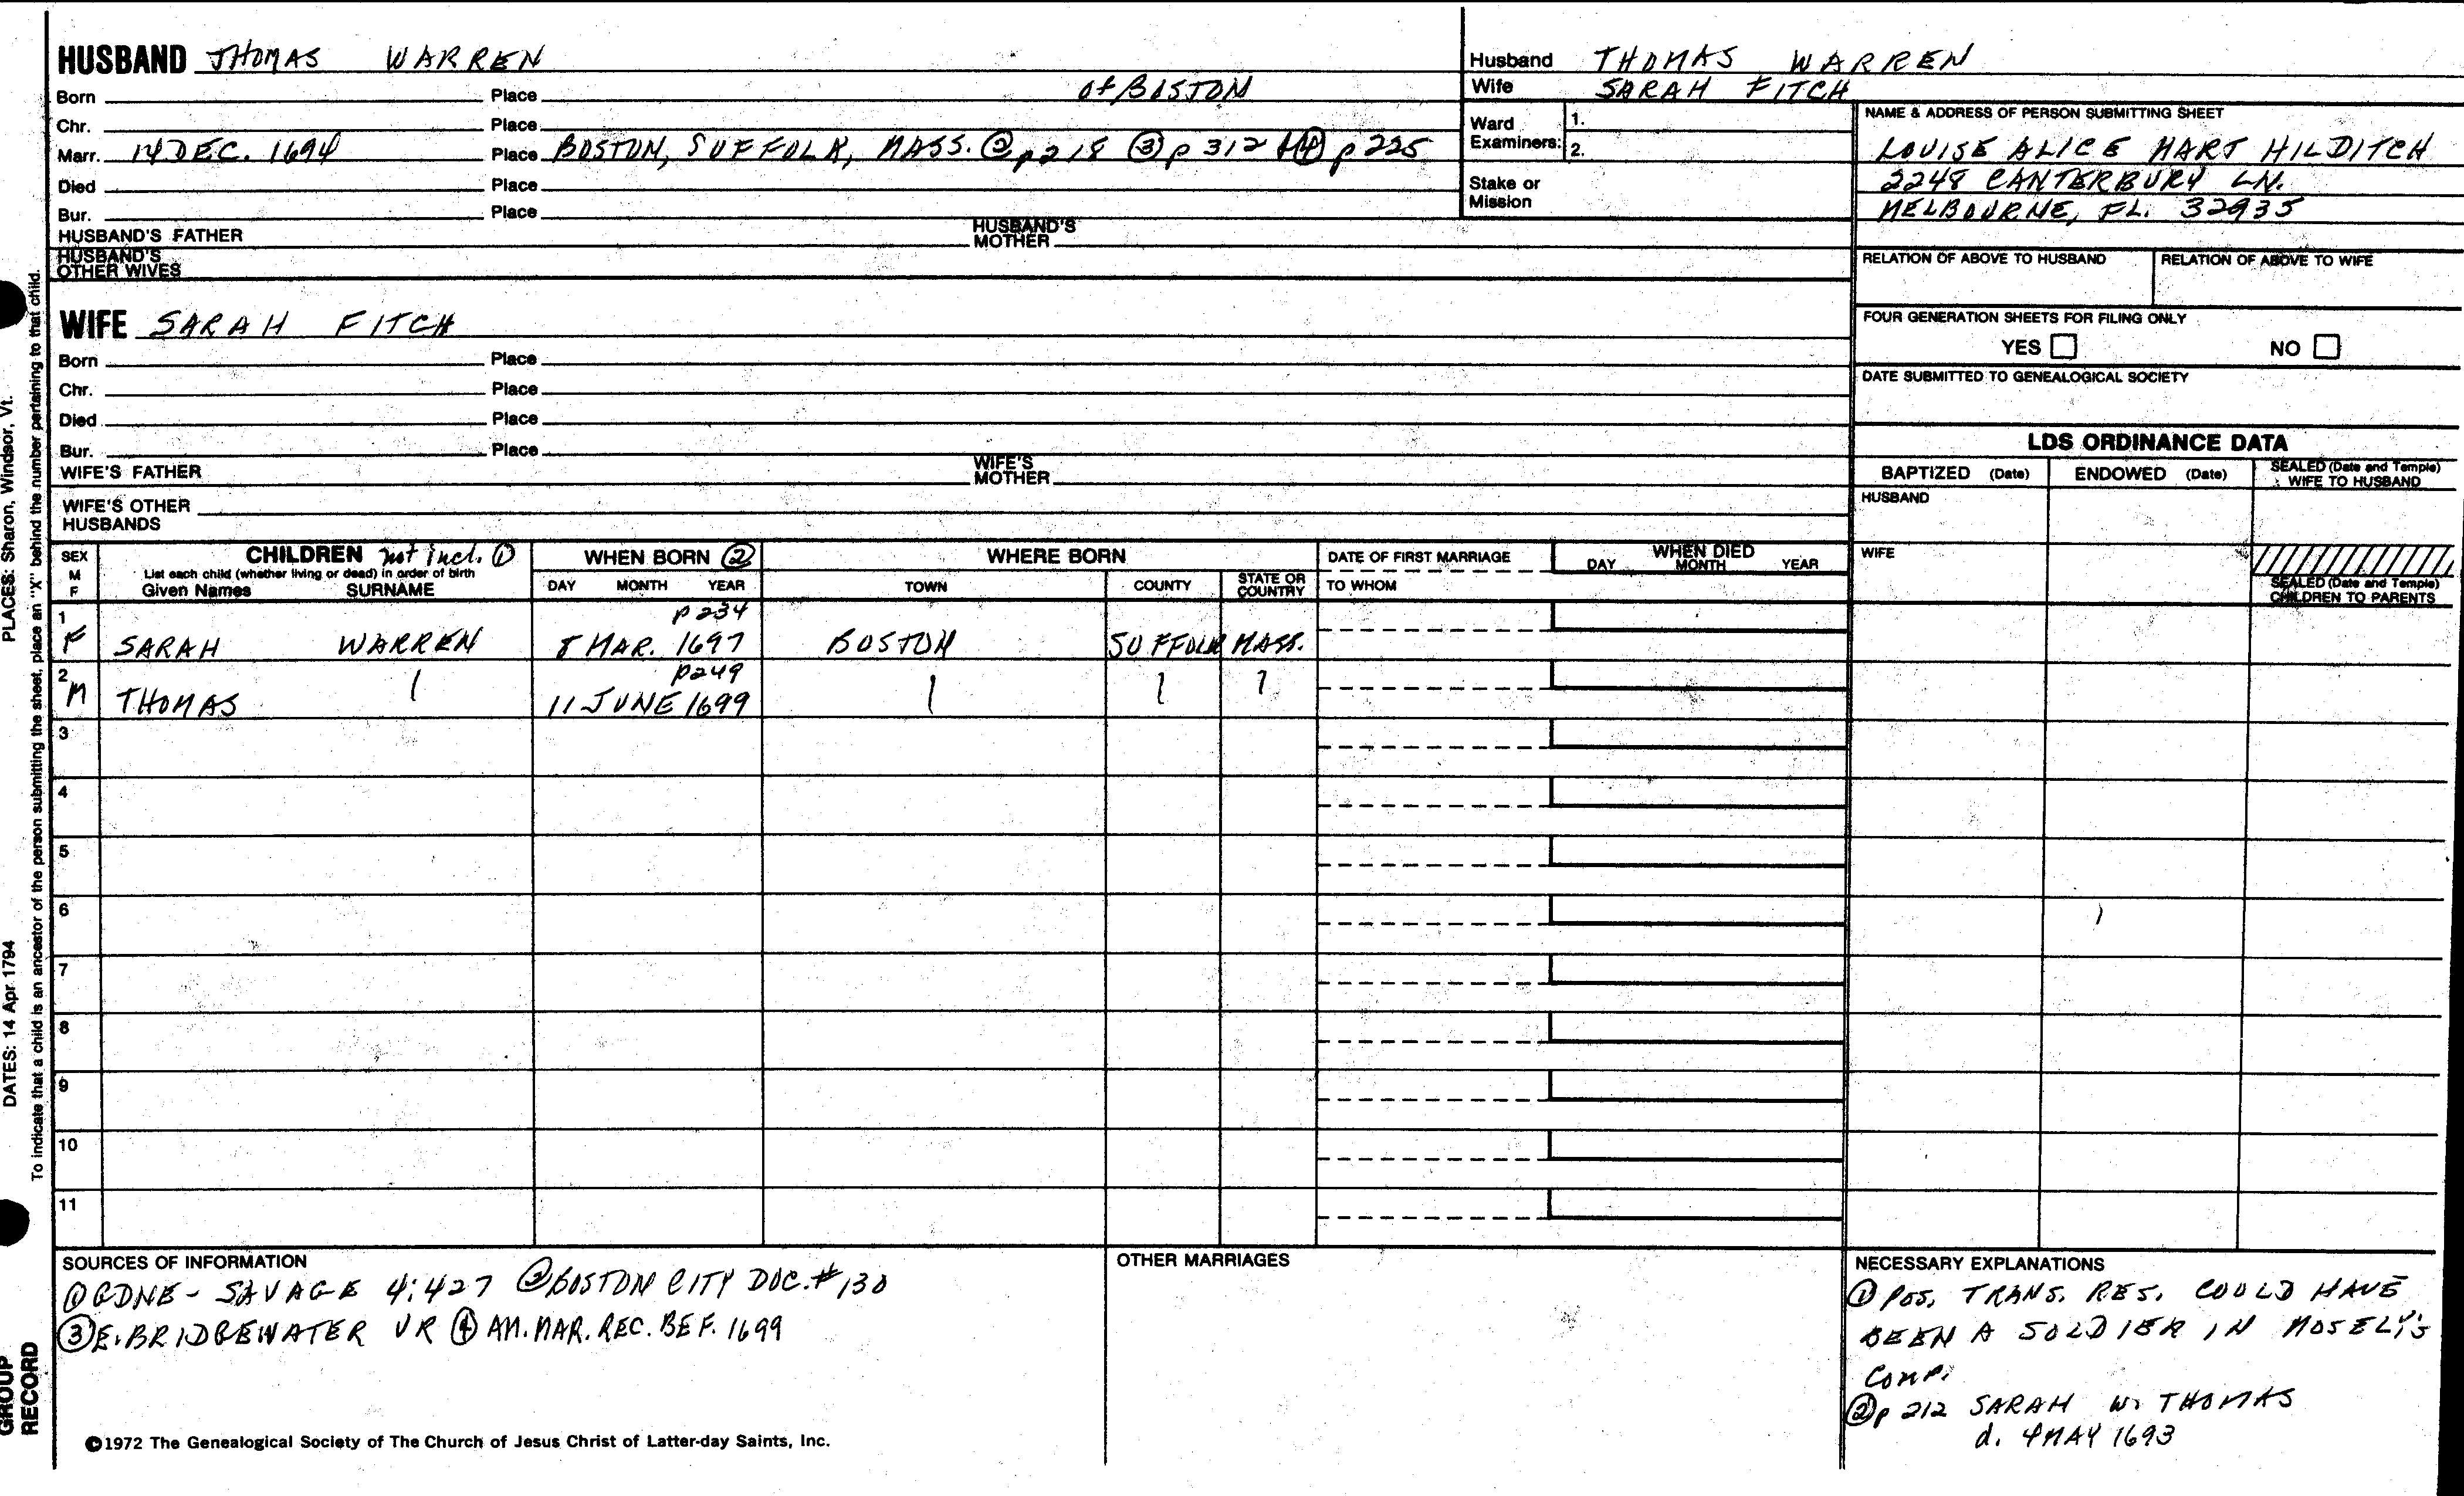 HUSBAND THOMAS WARREN
Born Place of BOSTON
Chr. Place
Marr. 14 DEC. 1694 Place BOSTON, SUFFOLK, MASS. ② p 218 ③ p 312 ④ p 225
Died Place
Bur. Place
HUSBAND'S FATHER HUSBAND'S MOTHER
HUSBAND'S OTHER WIVES
Husband THOMAS WARREN
Wife SARAH FITCH
Ward Examiners: 1.
2.
Stake or Mission
NAME & ADDRESS OF PERSON SUBMITTING SHEET
LOUISE ALICE HART HILDITCH
2248 CANTERBURY LN.
MELBOURNE, FL. 32935
RELATION OF ABOVE TO HUSBAND RELATION OF ABOVE TO WIFE
FOUR GENERATION SHEETS FOR FILING ONLY
YES NO
DATE SUBMITTED TO GENEALOGICAL SOCIETY
WIFE SARAH FITCH
Born Place
Chr. Place
Died Place
Bur. Place
WIFE'S FATHER WIFE'S MOTHER
WIFE'S OTHER HUSBANDS
LDS ORDINANCE DATA
BAPTIZED (Date) ENDOWED (Date) SEALED (Date and Temple) WIFE TO HUSBAND
HUSBAND
WIFE
SEALED (Date and Temple) CHILDREN TO PARENTS
SEX M F CHILDREN not incl. ① WHEN BORN ② WHERE BORN DATE OF FIRST MARRIAGE WHEN DIED
List each child (whether living or dead) in order of birth
Given Names SURNAME DAY MONTH YEAR TOWN COUNTY STATE OR COUNTRY TO WHOM DAY MONTH YEAR
1 p 234
F SARAH WARREN 8 MAR. 1697 BOSTON SUFFOLK MASS.
2 p 249
M THOMAS 11 JUNE 1699
3
4
5
6
7
8
9
10
11
SOURCES OF INFORMATION
① GDNE - SAVAGE 4:427 ② BOSTON CITY DOC. # 130
③ E. BRIDGEWATER VR ④ AM. MAR. REC. BEF. 1699
OTHER MARRIAGES
NECESSARY EXPLANATIONS
① POS. TRANS. RES. COULD HAVE
BEEN A SOLDIER IN MOSELY'S
COMP.
② p 212 SARAH W. THOMAS
d. 4 MAY 1693
©1972 The Genealogical Society of The Church of Jesus Christ of Latter-day Saints, Inc.
PLACES: Sharon, Windsor, Vt.
DATES: 14 Apr 1794
To indicate that a child is an ancestor of the person submitting the sheet, place an "X" behind the number pertaining to that child.
GROUP
RECORD